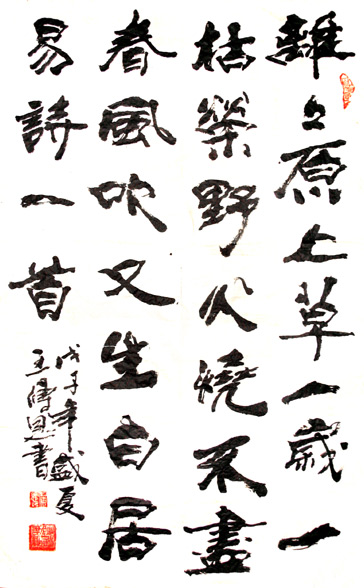 離々原上草一歲一
枯榮野火燒不盡
春風吹又生白居
易詩一首
戊子年盛夏
王書